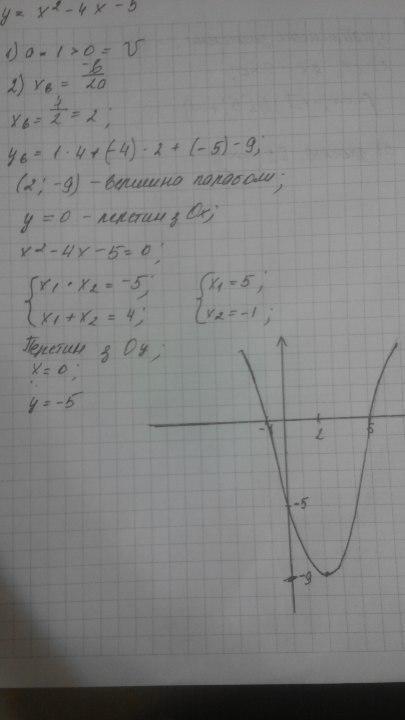 y = x² - 4x - 5
1) a = 1 > 0 = V
2) xв = -b/2a
xв = 4/2 = 2;
yв = 1 · 4 + (-4) · 2 + (-5) - 9;
(2; -9) - вершина параболи;
y = 0 - перетин з Ox;
x² - 4x - 5 = 0;
{ x₁ · x₂ = -5; { x₁ = 5;
{ x₁ + x₂ = 4; { x₂ = -1;
Перетин з Oy;
x = 0;
y = -5
-1 2 5
-5
-9